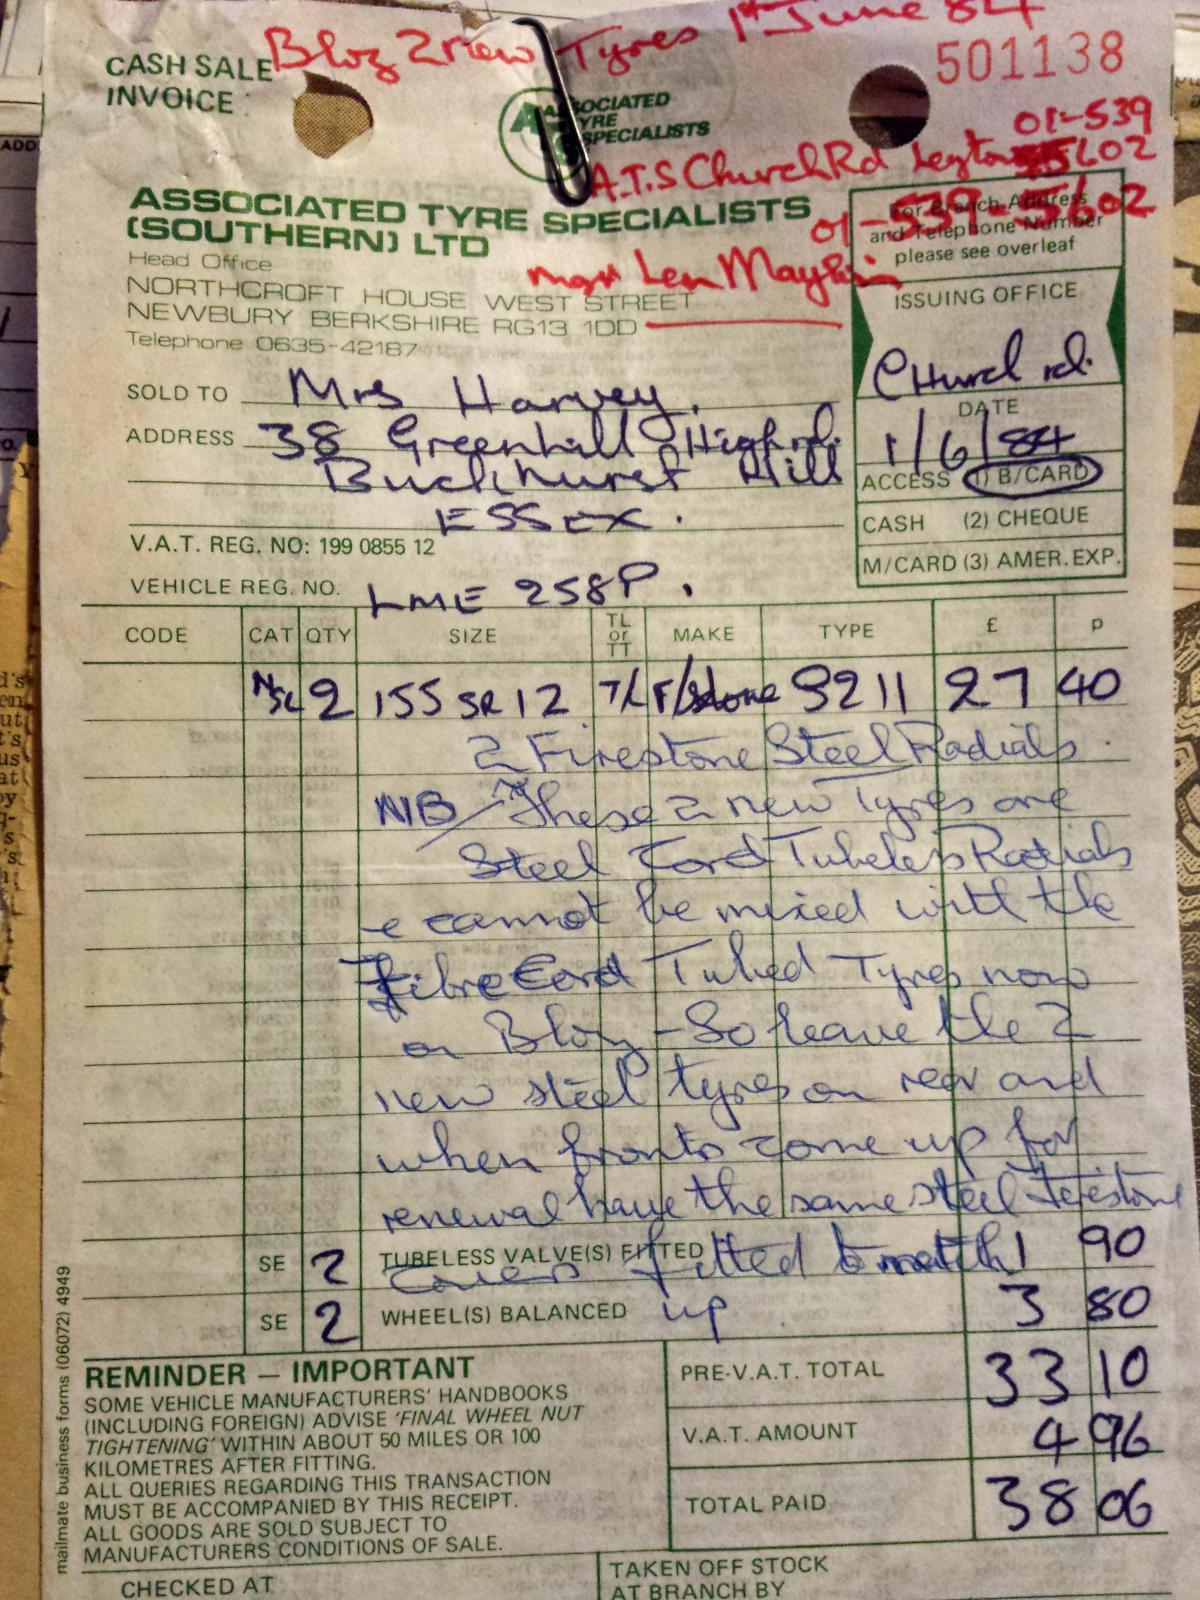 Bloz 2 new Tyres 1st June 84
CASH SALE
INVOICE
501138
ASSOCIATED
TYRE
SPECIALISTS
01-539
A.T.S Church Rd Leyton 5602
01-539-5602
ASSOCIATED TYRE SPECIALISTS
(SOUTHERN) LTD
For Branch Address
and Telephone Number
please see overleaf
Head Office
mgr Len
NORTHCROFT HOUSE WEST STREET
NEWBURY BERKSHIRE RG13 1DD
Telephone 0635-42187
ISSUING OFFICE
Church rd.
SOLD TO Mrs Harvey.
ADDRESS 38 Greenhill High rd.
Buckhurst Hill
ESSEX.
DATE
1/6/84
ACCESS (1) B/CARD
CASH (2) CHEQUE
M/CARD (3) AMER. EXP.
V.A.T. REG. NO: 199 0855 12
VEHICLE REG. NO. LME 258P.
CODE CAT QTY SIZE TL or TT MAKE TYPE £ p
2 155 SR 12 T/L F/stone S211 27 40
2 Firestone Steel Radials.
N/B These 2 new Tyres are
Steel Cord Tubeless Radials
& cannot be mixed with the
fibre Cord Tubed Tyres now
on Bloz - So leave the 2
new steel tyres on rear and
when fronts come up for
renewal have the same steel Firestone
SE 2 TUBELESS VALVE(S) FITTED 1 90
Covers fitted to match
SE 2 WHEEL(S) BALANCED 3 80
up
REMINDER — IMPORTANT
SOME VEHICLE MANUFACTURERS' HANDBOOKS
(INCLUDING FOREIGN) ADVISE 'FINAL WHEEL NUT
TIGHTENING' WITHIN ABOUT 50 MILES OR 100
KILOMETRES AFTER FITTING.
ALL QUERIES REGARDING THIS TRANSACTION
MUST BE ACCOMPANIED BY THIS RECEIPT.
ALL GOODS ARE SOLD SUBJECT TO
MANUFACTURERS CONDITIONS OF SALE.
PRE-V.A.T. TOTAL 33 10
V.A.T. AMOUNT 4 96
TOTAL PAID 38 06
CHECKED AT
TAKEN OFF STOCK
AT BRANCH BY
mailmate business forms (06072) 4949